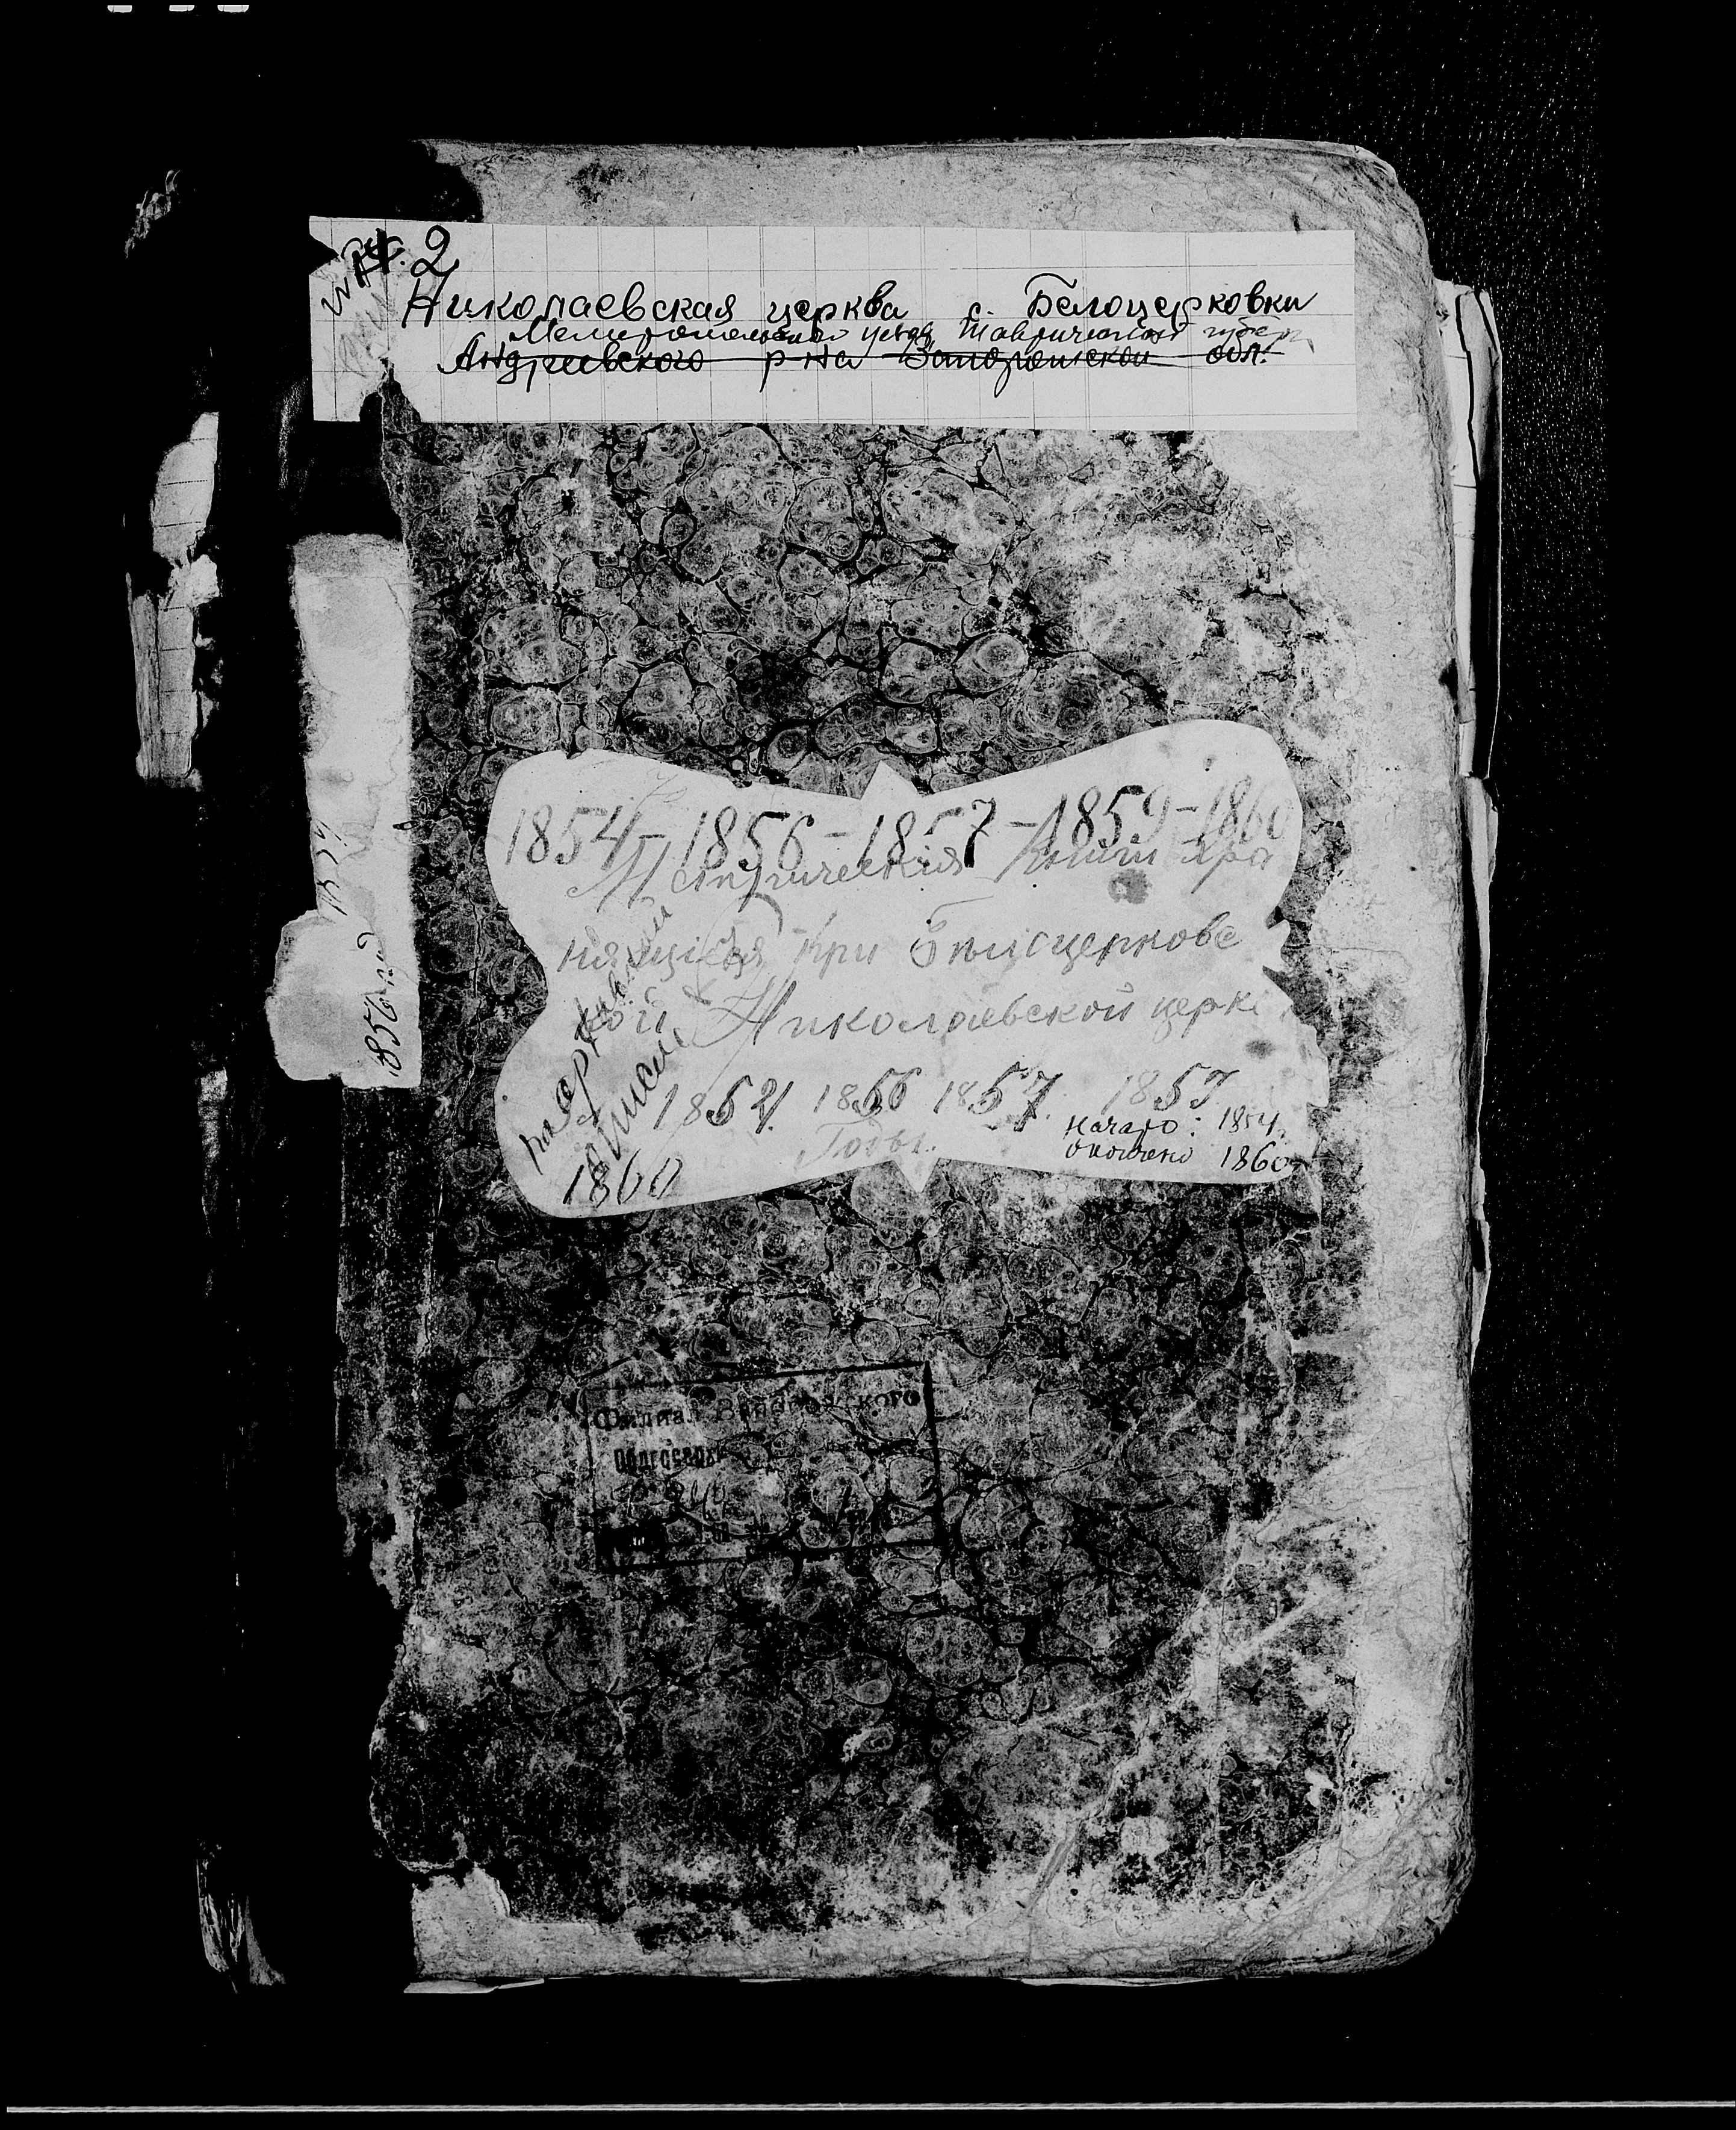 2
Николаевская церква с. Белоцерковки
Мелитопольского уезда, Таврической губерн
Андреевского р-на Запорожской обл.
1854 - 1856 - 1857 - 1859 - 1860
Метрическия книги хра
нящіяся при Бѣлоцерковс
кой Николаевской церкв
1854. 1856 1857. 1859
Годы.
1860
начато: 1854.
окончено 1860
1854
1856 год
Филиал Запорожского
облгосархива